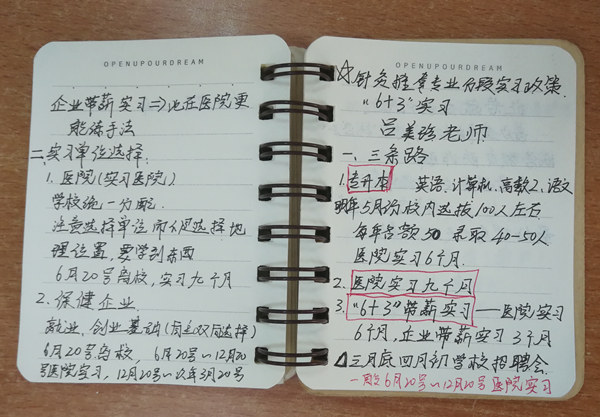 OPENUPOURDREAM
企业带薪实习⇒比在医院更
能练手法
二、实习单位选择.
1. 医院(实习医院)
学校统一分配
注意选择单位而不仅选择地
理位置,要学到东西
6月20号离校,实习九个月
2. 保健企业
就业、创业基础(有点双向选择)
6月20号离校, 6月20号~12月20
号医院实习, 12月20号~次年3月20号
OPENUPOURDREAM
☆针灸推拿专业分段实习政策.
"6+3"实习
吕美强老师
一、三条路
1. 专升本 英语、计算机、高数2、语文
明年5月份校内选拔100人左右
每年名额50 录取40-50人
医院实习6个月.
2. 医院实习九个月
3. "6+3"带薪实习——医院实习
6个月,企业带薪实习3个月
△三月底四月初学校招聘会.
一般6月20号~12月20号医院实习